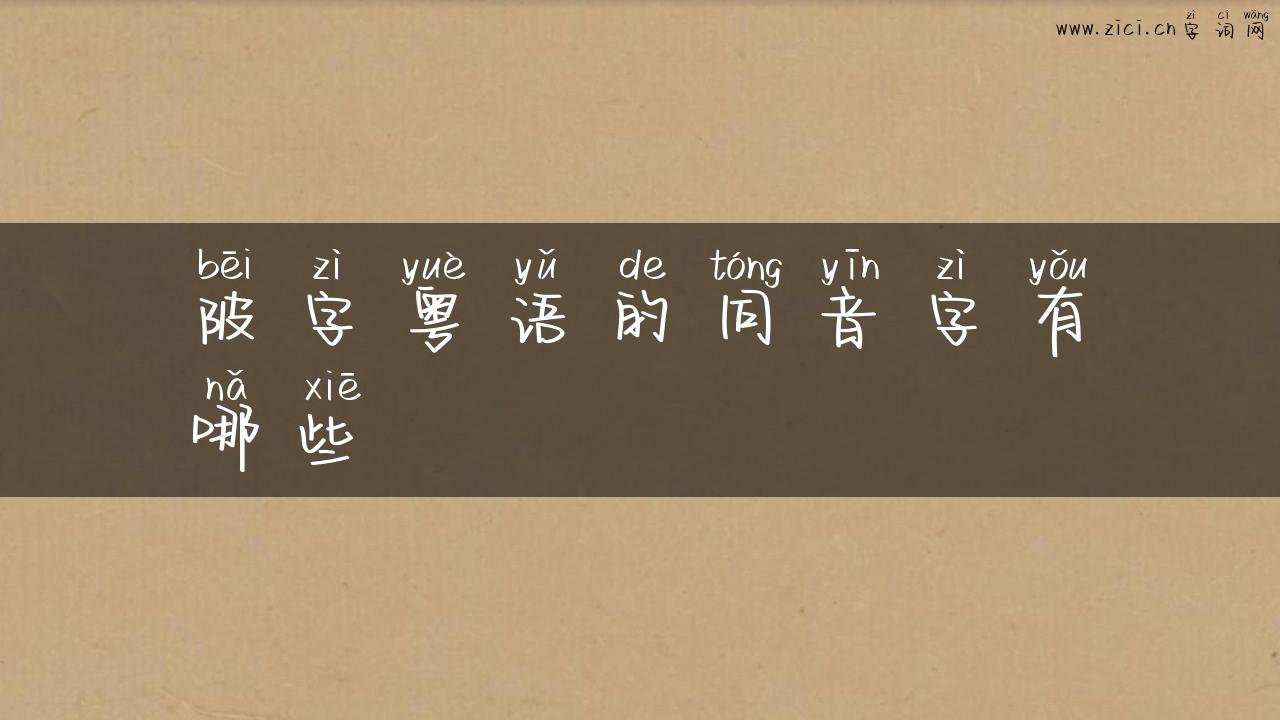 zì cí wǎng
www.zici.cn 字词网
bēi zì yuè yǔ de tóng yīn zì yǒu
陂字粤语的同音字有
nǎ xiē
哪些